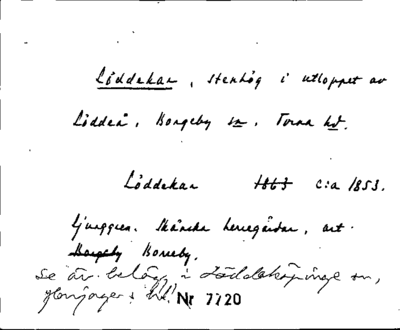 Löddekar, stenhög i utloppet av
Löddeå, Borgeby sn, Torna hd.
Löddekar 1863 c:a 1853.
Ljunggren. Skånska herregårdar, art.
Borgeby Borreby.
Se äv. belägg i Löddeköpinge sn,
Harjagers hd! Nr 7720